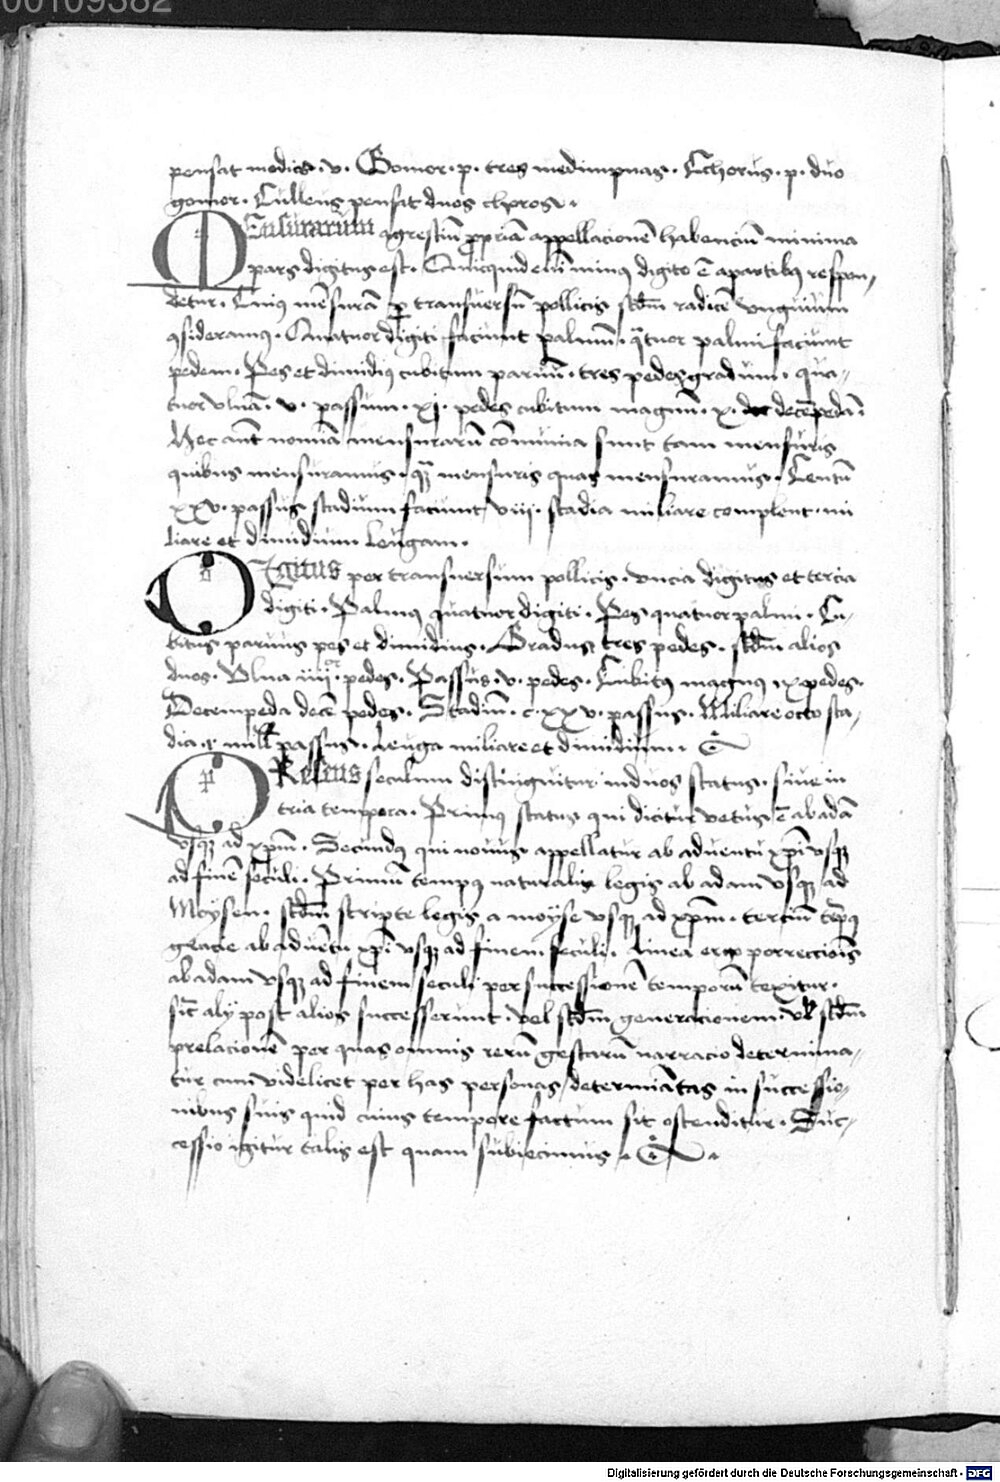 00109382
pensat modios · v · Gomor · p · tres medimpnas · Chorus · p · duo
gomor · Culleus pensat duos choros ·
MEnsurarum agrestiū ꝓpriā appellacionē habenciū minima
pars digitus est · Quicquid eni minꝰ digito ē a partibꝫ respon⸗
detur · Cuiꝰ mēsurā ꝑ transuersū pollicis scd̄m radicē vnguium
ꝯsideramꝰ · Quatuor digiti faciunt palmum · qͣtuor palmi faciunt
pedem · Pes et dimidiꝰ cubitum paruū · tres pedes gradum · qua⸗
tuor vlnā · v · passum · ix · pedes cubitum magnū · x · decēpedā ·
Hec aūt nomīa mensurarū cōmunia sunt tam mensuris
quibus mensuramus · qͣꝫ mensuris quas mensuramus · Centū
xxv · passus stadium faciunt / viij · stadia miliare complent · mi
liare et dimidium leugam ·
DIgitus per transuersum pollicis · vncia digitus et tercia
digiti · Palmꝰ quatuor digiti · Pes quatuor palmi · Cu⸗
bitus paruus pes et dimidius · Gradus tres pedes · scd̄m alios
duos · Vlna iiiiᵒʳ pedes · Passus · v · pedes · Cubitꝰ magnus ix pedes ·
Decempeda decē pedes · Stadiū · c · xxv · passus · Miliare octo sta⸗
dia · mill̄ passus · Leuga miliare et dimidium ·
PResens seculum distinguitur in duos status · siue in
tria tempora · Primꝰ status qui dicitur vetus ē ab adā
vsqꝫ ad xp̄m · Secundꝰ qui nouus appellatur ab aduentu xp̄i vsqꝫ
ad finē seculi · Primū tempꝰ naturalis legis ab adam vsqꝫ ad
Moysen · scd̄m scripte legis a moyse vsqꝫ ad xp̄m · terciū tp̄ꝰ
gracie ab aduētu xp̄i vsqꝫ ad finem seculi · Linea ergo porreccionis
ab adam vsqꝫ ad finem seculi per successionē temporū texitur ·
sic̄ alij post alios successerunt · vel scd̄m generacionem · vl̄ scd̄m
prelacionē per quas omnis rerū gestarū narracio determina⸗
tur cum videlicet per has personas / determīatas in successio⸗
nibus suis quid cuius tempore factum sit ostenditur · Suc⸗
cessio igitur talis est quam subiecimus ·
Digitalisierung gefördert durch die Deutsche Forschungsgemeinschaft - DFG